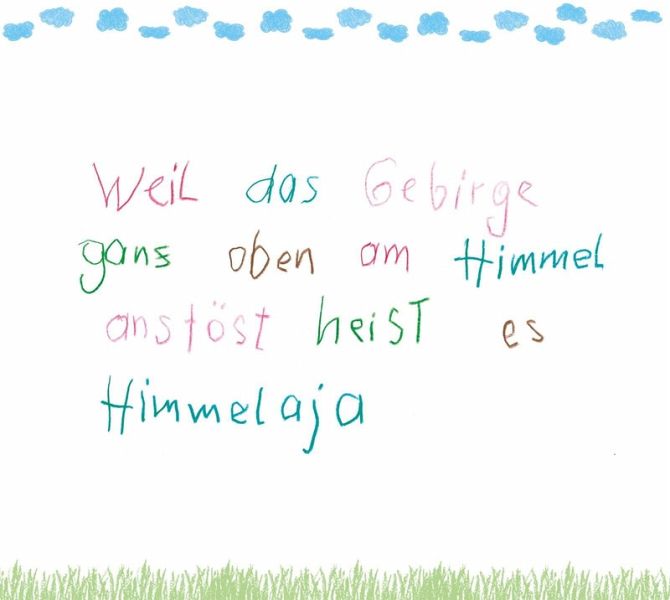 Weil das Gebirge
gans oben am Himmel
anstöst heist es
Himmelaja